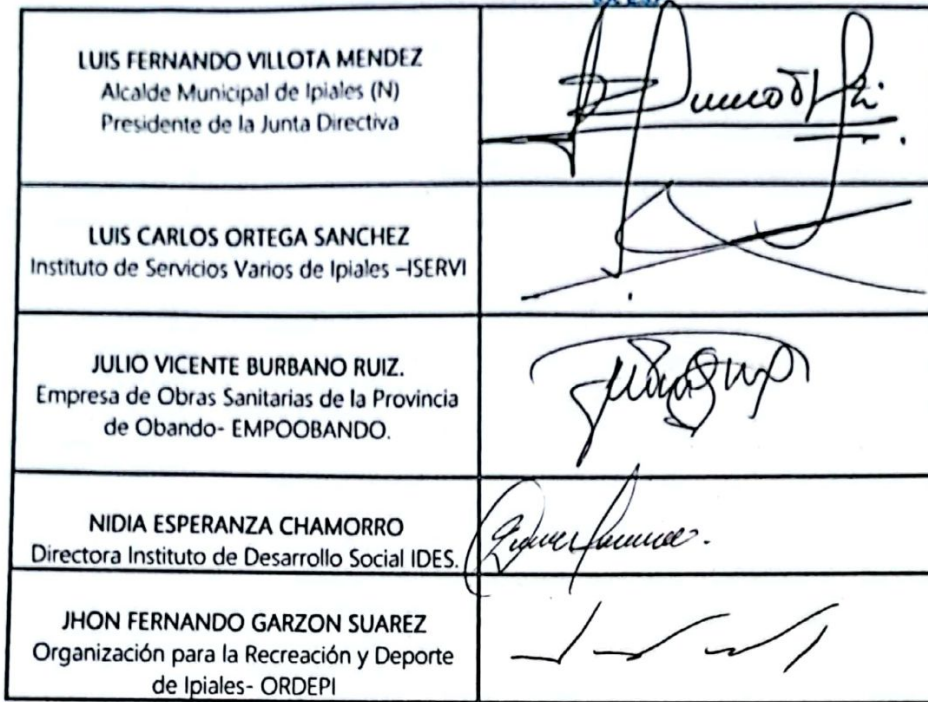 LUIS FERNANDO VILLOTA MENDEZ
Alcalde Municipal de Ipiales (N)
Presidente de la Junta Directiva
LUIS CARLOS ORTEGA SANCHEZ
Instituto de Servicios Varios de Ipiales –ISERVI
JULIO VICENTE BURBANO RUIZ.
Empresa de Obras Sanitarias de la Provincia
de Obando- EMPOOBANDO.
NIDIA ESPERANZA CHAMORRO
Directora Instituto de Desarrollo Social IDES.
JHON FERNANDO GARZON SUAREZ
Organización para la Recreación y Deporte
de Ipiales- ORDEPI